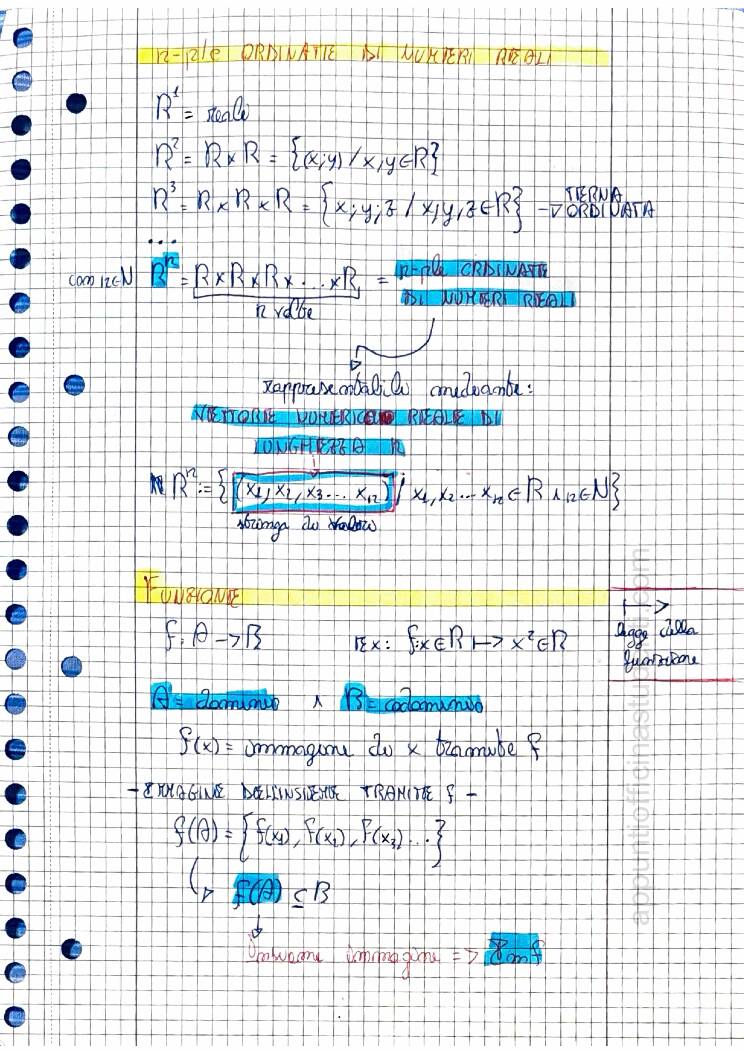 n-ple ORDINATE DI NUMERI REALI
R¹ = reale
R² = R×R = {(x;y) / x,y∈R}
R³ = R×R×R = {x;y;z / x,y,z∈R} → TERNA ORDINATA
...
con n∈N Rⁿ = R×R×R×...×R = n-ple ORDINATE
n volte DI NUMERI REALI
rappresentabile mediante:
VETTORE NUMERICO REALE DI
LUNGHEZZA n
Rⁿ := {(x₁, x₂, x₃... xₙ) / x₁, x₂... xₙ ∈ R ∧ n∈N}
stringa di valori
FUNZIONE
f: A → B Ex: f: x∈R ↦ x²∈R
↦
legge della
funzione
A = dominio ∧ B = codominio
f(x) = immagine di x tramite f
- IMMAGINE DELL'INSIEME TRAMITE f -
f(A) = {f(x₁), f(x₂), f(x₃)...}
↳ f(A) ⊆ B
↓
Insieme immagine => Imf
appuntiofficinastudenti.com